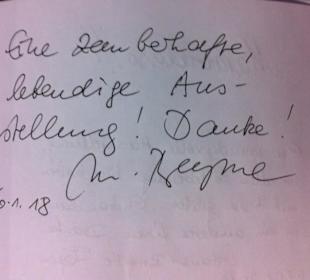 Eine zauberhafte,
lebendige Aus-
stellung! Danke!
M.
.1.18